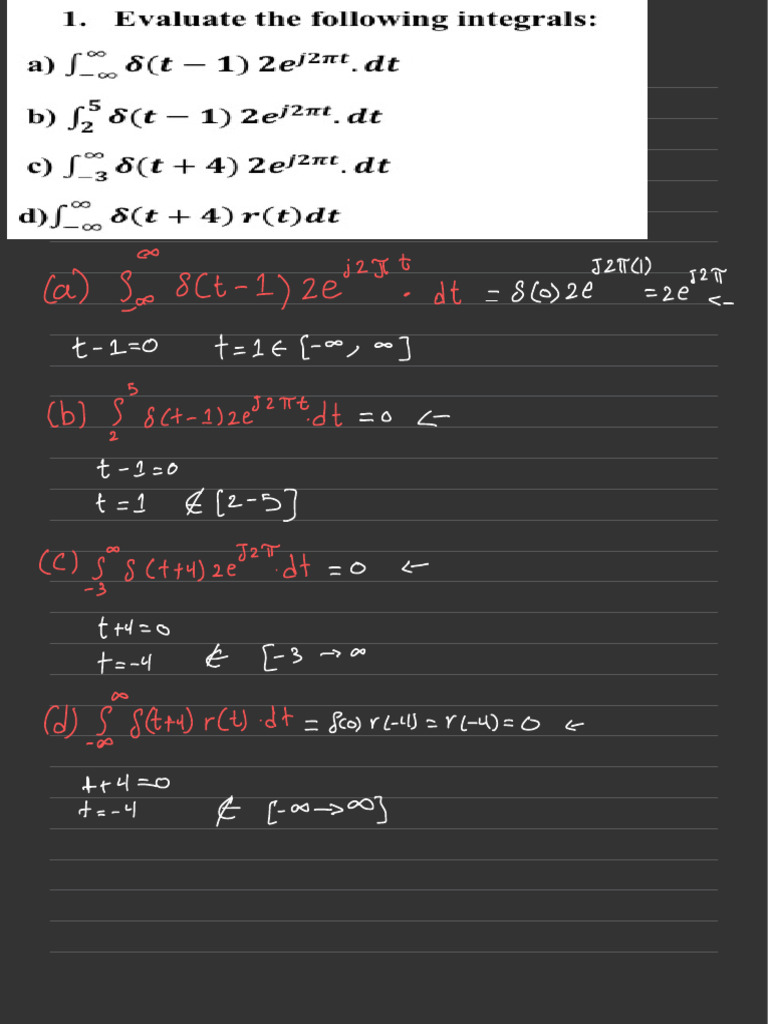 1. Evaluate the following integrals:
a) ∫_{-∞}^{∞} δ(t − 1) 2e^{j2πt}. dt
b) ∫_{2}^{5} δ(t − 1) 2e^{j2πt}. dt
c) ∫_{-3}^{∞} δ(t + 4) 2e^{j2πt}. dt
d)∫_{-∞}^{∞} δ(t + 4) r(t)dt
(a) ∫_{-∞}^{∞} δ(t-1) 2e^{j2πt} . dt = δ(0) 2e^{J2π(1)} = 2e^{J2π} ←
t-1=0 t=1 ∈ [-∞, ∞]
(b) ∫_{2}^{5} δ(t-1) 2e^{J2πt} . dt = 0 ←
t-1=0
t=1 ∉ [2-5]
(C) ∫_{-3}^{∞} δ(t+4) 2e^{J2π} . dt = 0 ←
t+4=0
t=-4 ∉ [-3 → ∞
(d) ∫_{-∞}^{∞} δ(t+4) r(t) . dt = δ(0) r(-4) = r(-4) = 0 ←
t+4=0
t=-4 ∉ [-∞→∞]